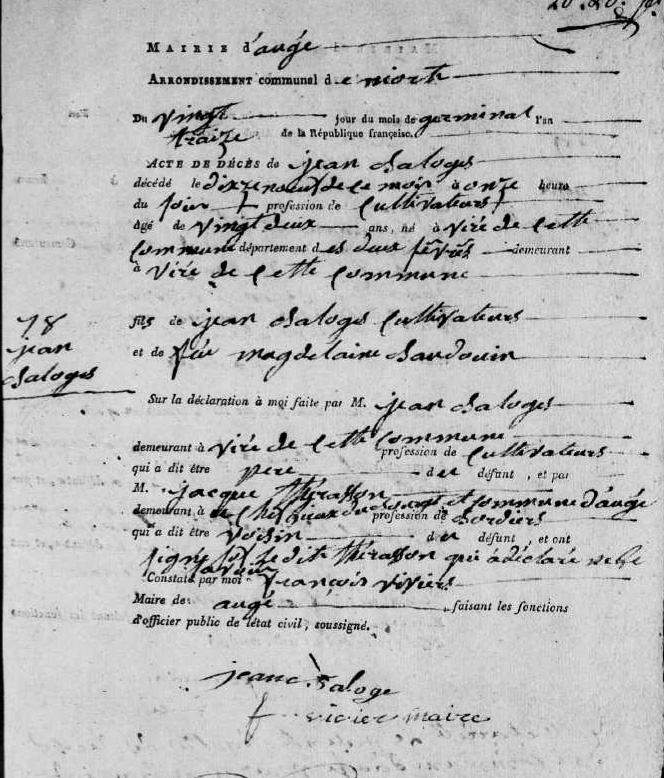 MAIRIE d'augé
ARRONDISSEMENT communal de niort
Du vingt jour du mois de germinal l'an
traize de la République française.
ACTE DE DÉCÈS de jean Saloges
décédé le dixzneuf de ce mois à onze heure
du soir profession de Cultivateurs
âgé de vingt deux ans, né à viré de Cette
Commune département des deux sevres demeurant
à viré de Cette Commune
78
jean
Saloges
fils de jean Saloges Cultivateurs
et de feue magdelaine Baudouin
Sur la déclaration à moi faite par M. jean Saloges
demeurant à viré de Cette Commune
profession de Cultivateurs
qui a dit être pere du défunt, et par
M. jacque thérasson
demeurant à commune d'augé
profession de Bordiers
qui a dit être voisin du défunt, et ont
signé ledit thérasson qui à déclaré ne le
savoir
Constaté par moi françois viviers
Maire de augé faisant les fonctions
d'officier public de l'état civil, soussigné.
jean Saloge
f vivier maire